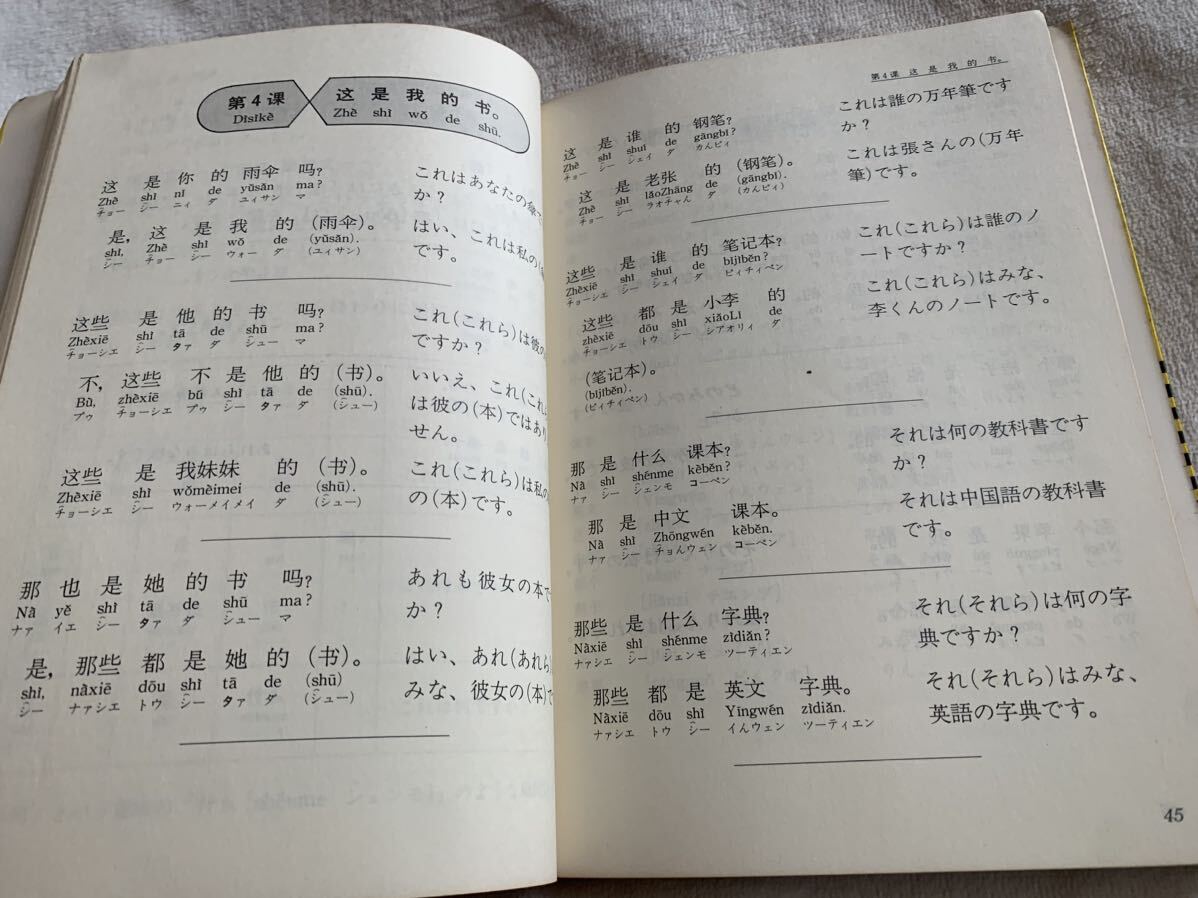 第4课 这是我的书。
Dìsìkè Zhè shì wǒ de shū.
这 是 你 的 雨伞 吗? これはあなたの傘で
Zhè shì nǐ de yǔsǎn ma? か?
チョー シー ニィ ダ ユィサン マ
是, 这 是 我 的 (雨伞)。 はい、これは私の
shì, Zhè shì wǒ de (yǔsǎn). です。
シー チョー シー ウォー ダ (ユィサン)
这些 是 他 的 书 吗? これ(これら)は彼の
Zhèxiē shì tā de shū ma? ですか?
チョーシエ シー タァ ダ シュー マ
不, 这些 不 是 他 的 (书)。 いいえ、これ(これ
Bù, zhèxiē bú shì tā de (shū). は彼の(本)ではあり
プゥ チョーシエ プゥ シー タァ ダ (シュー) せん。
这些 是 我妹妹 的 (书)。 これ(これら)は私の
Zhèxiē shì wǒmèimei de (shū). の(本)です。
チョーシエ シー ウォーメイメイ ダ (シュー)
那 也 是 她 的 书 吗? あれも彼女の本で
Nà yě shì tā de shū ma? か?
ナァ イエ シー タァ ダ シュー マ
是, 那些 都 是 她 的 (书)。 はい、あれ(あれら)
shì, nàxiē dōu shì tā de (shū) みな、彼女の(本)で
シー ナァシエ トウ シー タァ ダ (シュー)
第4课 这是我的书。
这 是 谁 的 钢笔? これは誰の万年筆です
Zhè shì shuí de gāngbǐ? か?
チョー シー シェイ ダ カんピィ
这 是 老张 的 (钢笔)。 これは張さんの(万年
Zhè shì lǎoZhāng de (gāngbǐ). 筆)です。
チョー シー ラオチャん ダ (カんピィ)
这些 是 谁 的 笔记本? これ(これら)は誰のノ
Zhèxiē shì shuí de bǐjìběn? ートですか?
チョーシエ シー シェイ ダ ピィチィペン
这些 都 是 小李 的 これ(これら)はみな、
zhèxiē dōu shì xiǎoLǐ de 李くんのノートです。
チョーシエ トウ シー シアオリィ ダ
(笔记本)。
(bǐjìběn).
(ピィチィペン)
那 是 什么 课本? それは何の教科書です
Nà shì shénme kèběn? か?
ナァ シー シェンモ コーペン
那 是 中文 课本。 それは中国語の教科書
Nà shì Zhōngwén kèběn. です。
ナァ シー チョんウェン コーペン
那些 是 什么 字典? それ(それら)は何の字
Nàxiē shì shénme zìdiǎn? 典ですか?
ナァシエ シー シェンモ ツーティエン
那些 都 是 英文 字典。 それ(それら)はみな、
Nàxiē dōu shì Yīngwén zìdiǎn. 英語の字典です。
ナァシエ トウ シー イんウェン ツーティエン
45